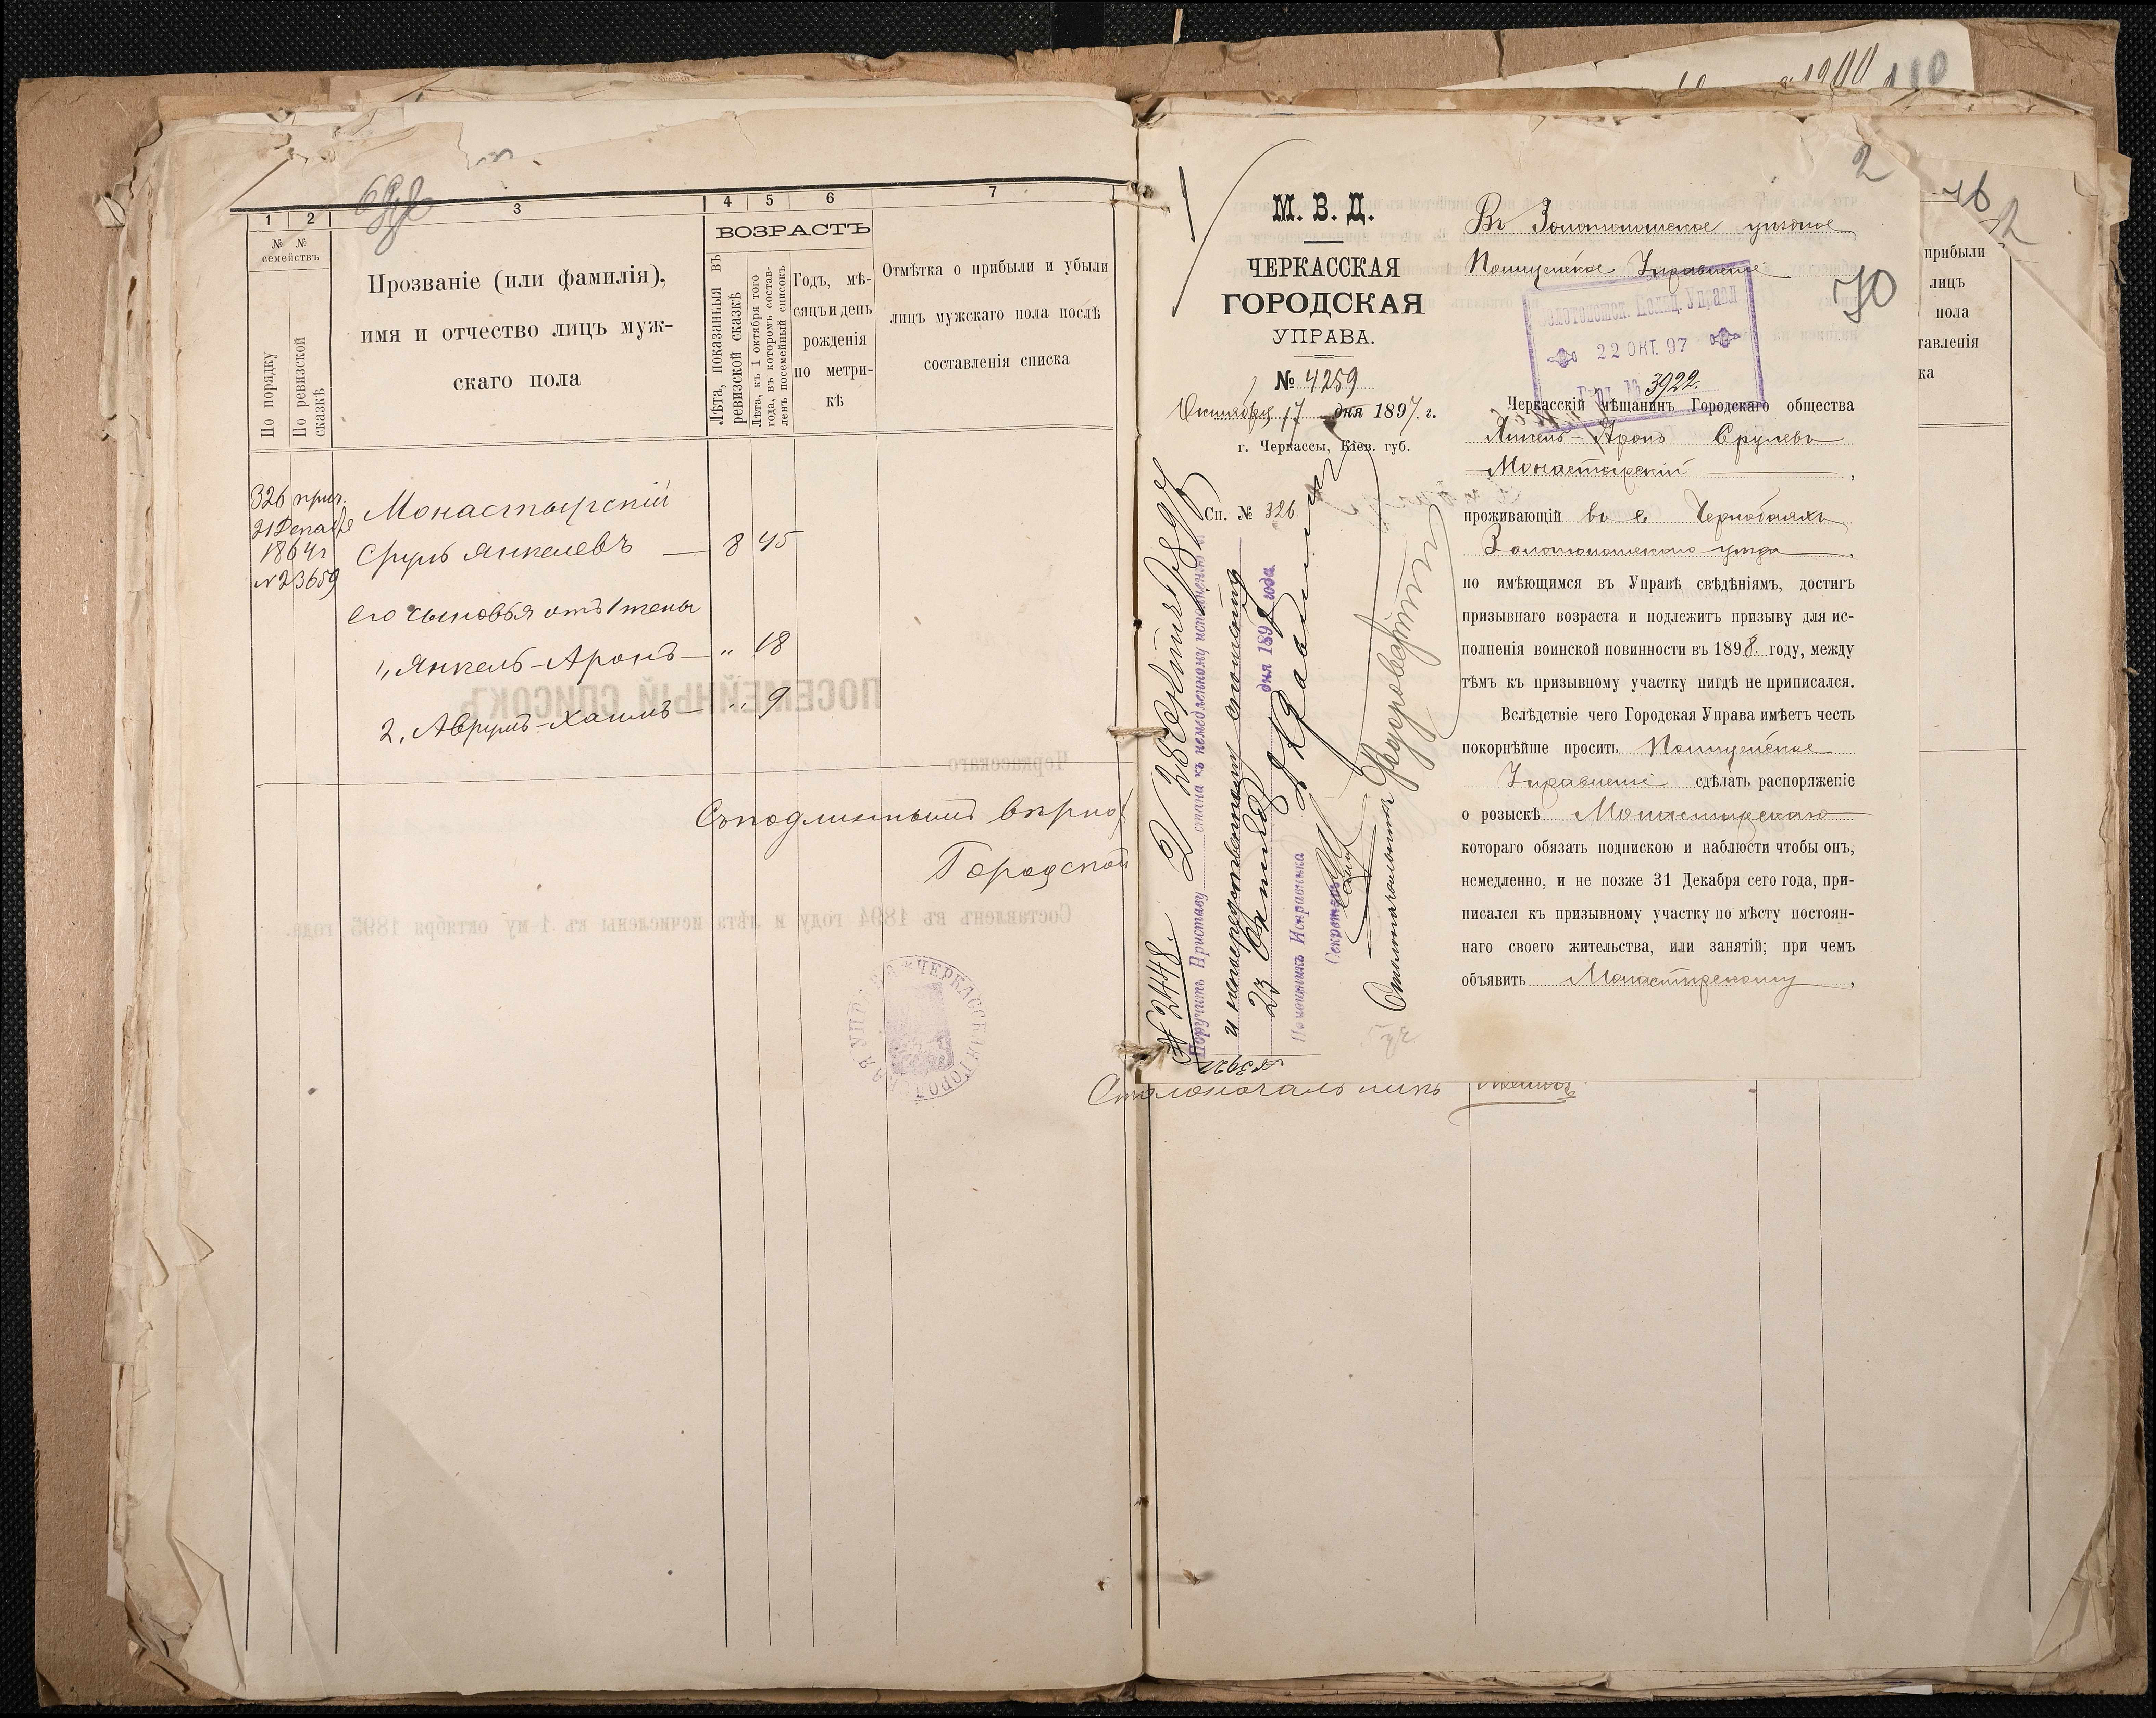 1 2 3 4 5 6 7
№ № семействъ
По порядку
По ревизской сказкѣ
Прозваніе (или фамилія),
имя и отчество лицъ муж-
скаго пола
ВОЗРАСТЪ
Лѣта, показаныя въ
ревизской сказкѣ
Лѣта, къ 1 октября того
года, въ которомъ состав-
ленъ посемейный списокъ
Годъ, мѣ-
сяцъ и день
рожденія
по метри-
кѣ
Отмѣтка о прибыли и убыли
лицъ мужскаго пола послѣ
составленія списка
326 прич.
21 Декабря
1864 г
№ 23659
Монастырскій
Сруль Янкелевъ — 8 45
его сыновья отъ 1 жены
1, Янкель-Аронъ — „ 18
2, Аврумъ-Хаимъ — „ 9
Съ подлиннымъ вѣрно
Городской
ПОСЕМЕЙНЫЙ СПИСОКЪ
Черкасскаго
Составленъ въ 1894 году и лѣта исчислены къ 1-му октября 1895 года.
ЧЕРКАССКАЯ ГОРОДСКАЯ УПРАВА
Столоначальникъ
1900 110
2
76
70
М. В. Д.
ЧЕРКАССКАЯ
ГОРОДСКАЯ
УПРАВА.
№ 4259
Октября 17 дня 1897 г.
г. Черкассы, Кіев. губ.
Сп. № 326
Въ Золотоношское уѣздное
Полицейское Управленіе
Золотоношск. Полиц. Управл
22 ОКТ. 97
3922.
Черкасскій мѣщанинъ Городскаго общества
Янкель-Аронъ Срулевъ
Монастырскій ,
проживающій въ с. Чернобаяхъ
Золотоношскаго уѣзда .
по имѣющимся въ Управѣ свѣдѣніямъ, достигъ
призывнаго возраста и подлежитъ призыву для ис-
полненія воинской повинности въ 1898. году, между
тѣмъ къ призывному участку нигдѣ не приписался.
Вслѣдствіе чего Городская Управа имѣетъ честь
покорнѣйше просить Полицейское
Управленіе сдѣлать распоряженіе
о розыскѣ Монастырскаго
котораго обязать подпискою и наблюсти чтобы онъ,
немедленно, и не позже 31 Декабря сего года, при-
писался къ призывному участку по мѣсту постоян-
наго своего жительства, или занятій; при чемъ
объявить Монастырскому ,
№ 2448.
28 Октября 97
Поручить Приставу 2 стана къ немедленному исполненію
и непосредственному
23 Октября дня 189 года
Помощникъ Исправника
Секретарь
Столоначальникъ
№ 3922
прибыли
лицъ
пола
тавленія
ка